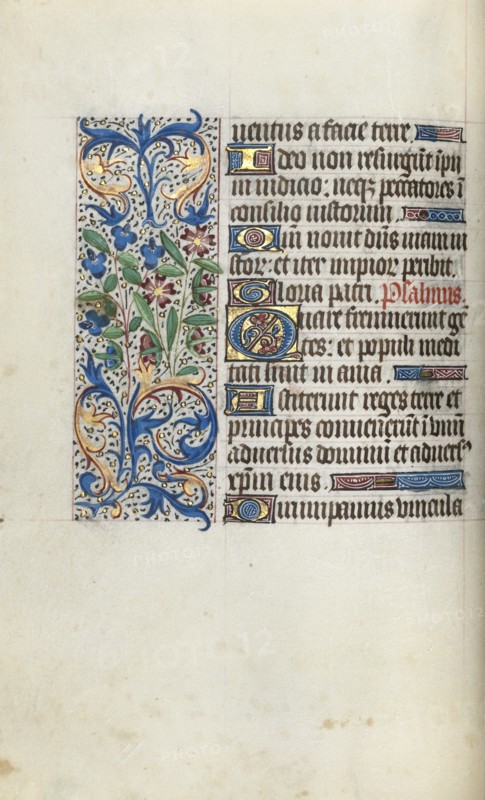 uentus a facie terre
Ideo non resurgūt ipii
in iudicio: neqꝫ peccatores ī
consilio iustorum.
Qm nouit dn̄s uiam iu
stoꝝ: et iter impioꝝ peribit.
Gloria patri. Psalmus.
Quare fremuerunt gē
tes: et populi medi
tati sunt in ania.
Astiterunt reges terre et
principes conuenerūt ī vnū
aduersus dominū et aduersꝰ
xp̄m eius.
Dirumpamus vincula